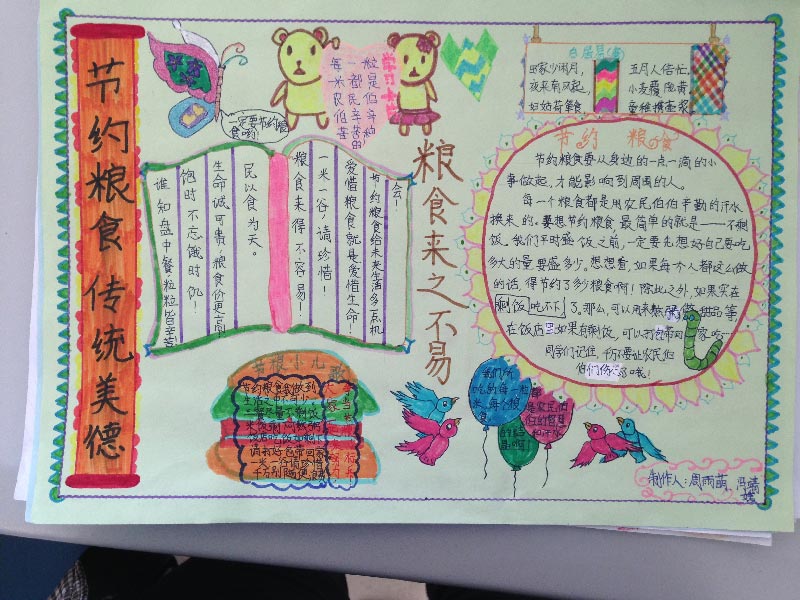 节约粮食 传统美德
一定要节约粮
食哟！
每一粒
米都是
农民伯伯
辛苦的
白居易(唐)
田家少闲月，
五月人倍忙。
夜来南风起，
小麦覆陇黄
粮食来之不易
会！
节约粮食给未来生活多点机
爱惜粮食就是爱惜生命！
一米一谷，请珍惜！
粮食来得不容易！
民以食为天。
生命诚可贵，粮食价更高！
饱时不忘饿时饥
谁知盘中餐，粒粒皆辛苦！
节约 粮食
节约粮食要从身边的一点一滴的小
事做起，才能影响到周围的人。
每一个粮食都是用农民伯伯辛勤的汗水
换来的。要想节约粮食，最简单的就是——不剩
饭。我们平时盛饭之前，一定要先想好自己要吃
多大的量要盛多少。想想看，如果每个人都这么做
的话，得节约了多少粮食啊！除此之外，如果实在
剩饭吃不下了。那么，可以用来做甜品等，
在饭店里如果有剩饭，可以打包带回家吃
同学们记住，千万不要让农民伯
伯们伤心哦！
节粮小儿歌
节约粮食我做到
我们所
吃的每一粒
米，每个粮
是农民伯
伯的智慧
和汗水
制作人：周雨萌、冯婧